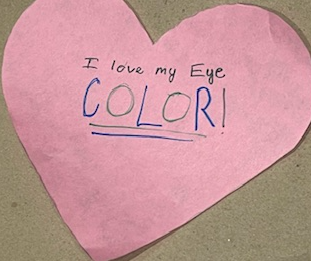 I love my Eye
COLOR!